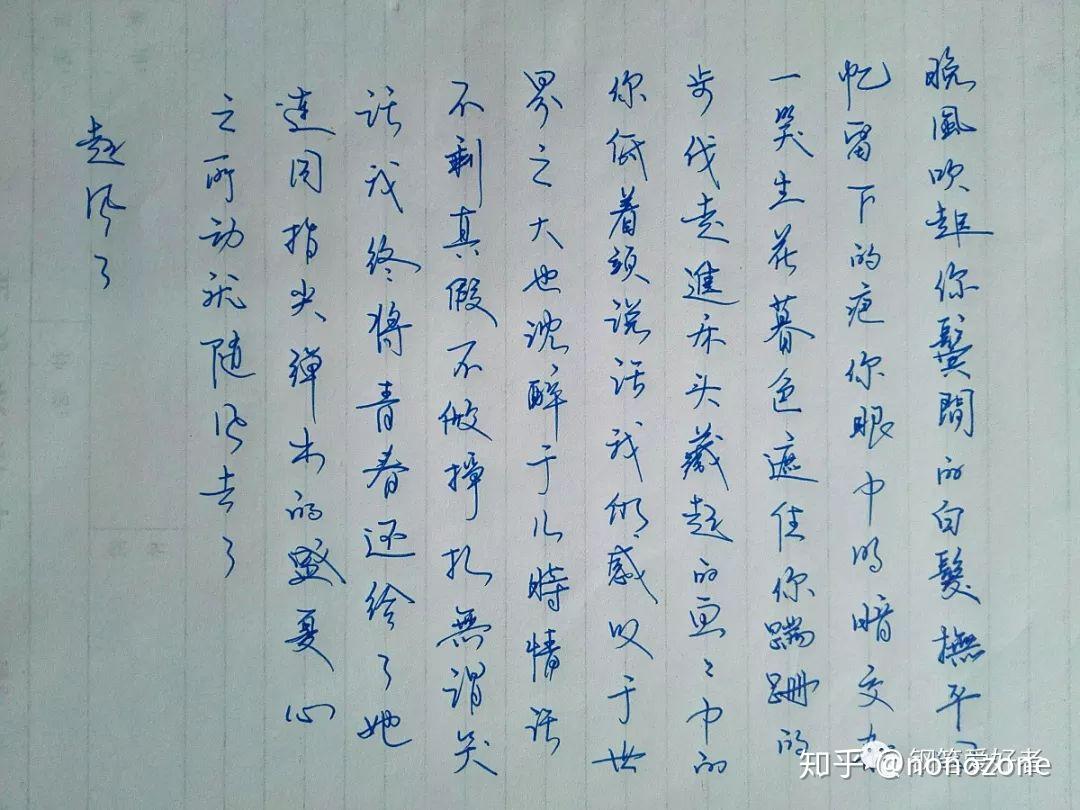 晚風吹起你鬓間的白髮撫平回
忆留下的疤你眼中明暗交杂
一哭生花暮色遮住你蹣跚的
步伐走進床头藏起的画々中的
你低着頭说话我仍感叹于世
界之大也沈醉于儿時情话
不剩真假不做掙扎無谓笑
话我终将青春还给了她
連同指尖弹出的盛夏心
之所动就随风去了
起风了
知乎 @nonozone
钢笔爱好者